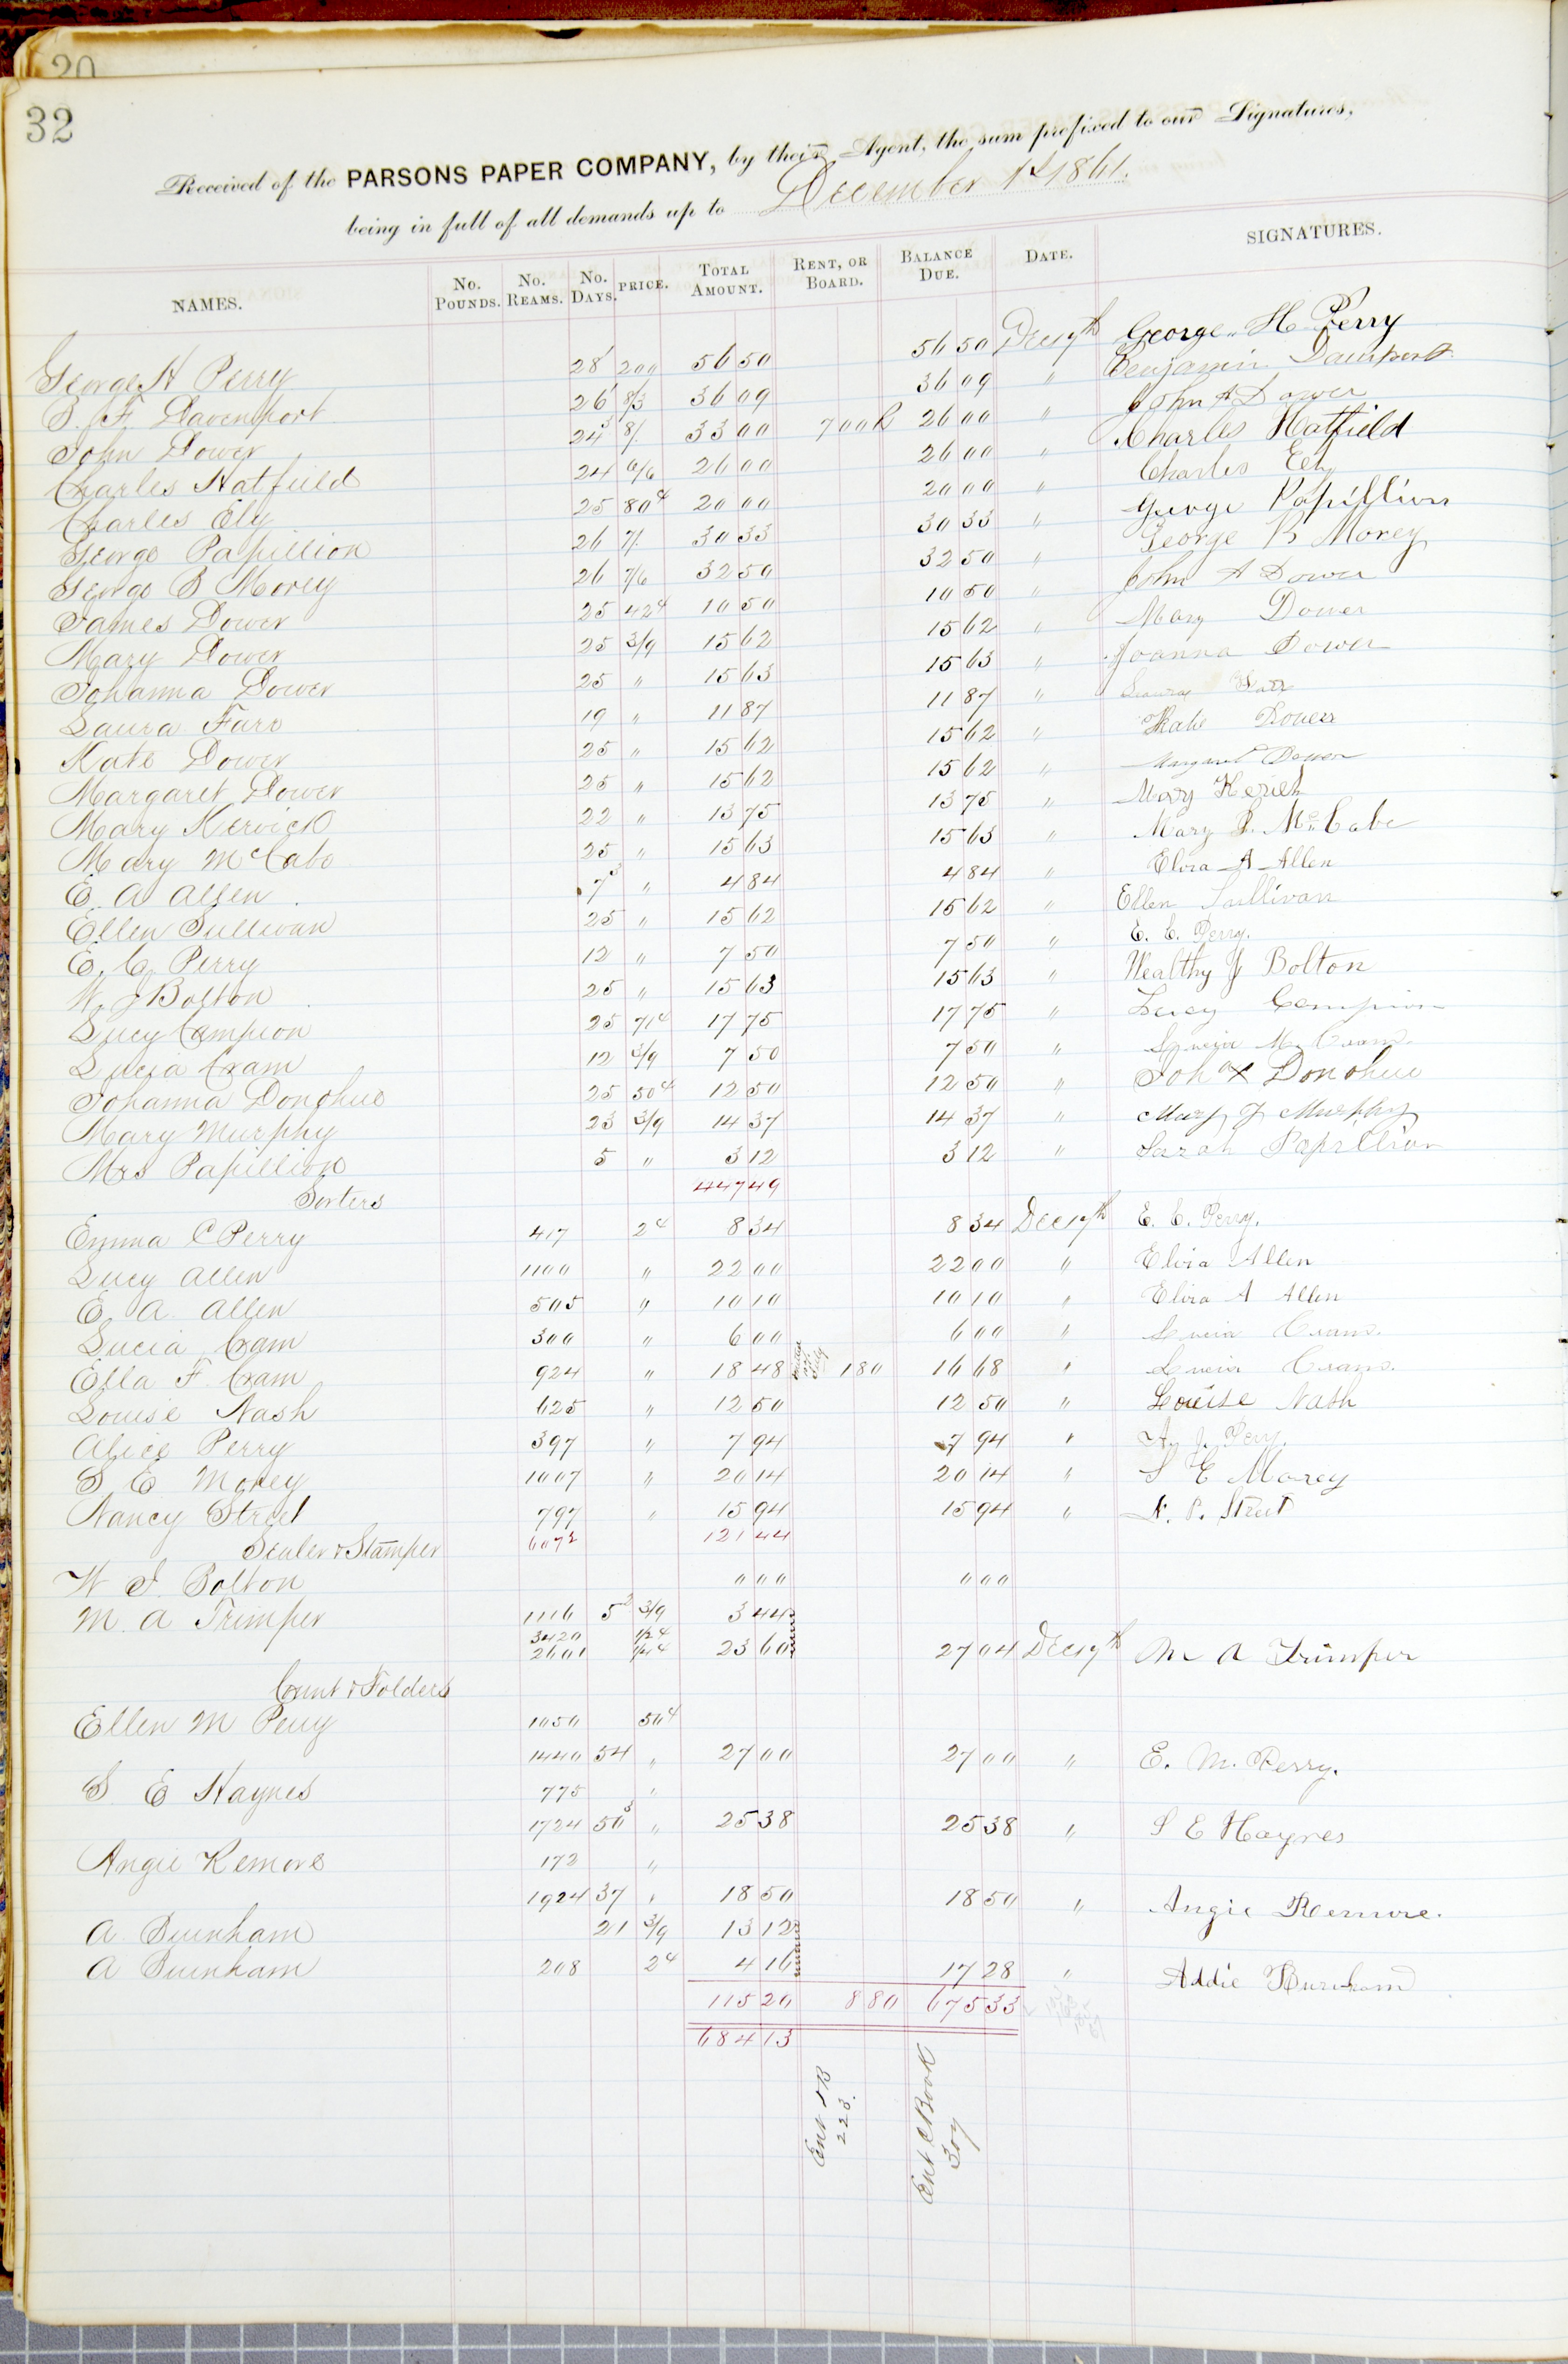 20
32
Received of the PARSONS PAPER COMPANY, by their Agent, the sum prefixed to our Signatures,
being in full of all demands up to December 1st 1861.
NAMES. No. Pounds. No. Reams. No. Days. PRICE. Total Amount. Rent, or Board. Balance Due. Date. SIGNATURES.
George H Perry 28 200 56 50 56 50 Dec 17th George H Perry
B. F. Davenport 26 8/3 36 09 36 09 " Benjamin Davenport
John Dower 24 3 8/. 33 00 7 00 R 26 00 " John A Dower
Charles Hatfield 24 6/6 26 00 26 00 " Charles Hatfield
Charles Ely 25 80 ¢ 20 00 20 00 " Charles Ely
George Papillion 26 7/. 30 33 30 33 " George Papillion
George B Morey 26 7/6 32 50 32 50 " George B Morey
James Dower 25 42 ¢ 10 50 10 50 " John A Dower
Mary Dower 25 3/9 15 62 15 62 " Mary Dower
Johanna Dower 25 " 15 63 15 63 " Joanna Dower
Laura Farr 19 " 11 87 11 87 " Laura Farr
Kate Dower 25 " 15 62 15 62 " Kate Dower
Margaret Dower 25 " 15 62 15 62 " Margaret Dower
Mary Kervick 22 " 13 75 13 75 " Mary
Mary McCabe 25 " 15 63 15 63 " Mary McCabe
E. A Allen 7 3 " 4 84 4 84 " Elvira A Allen
Ellen Sullivan 25 " 15 62 15 62 " Ellen Sullivan
E. C. Perry 12 " 7 50 7 50 " E. C. Perry.
W. J Bolton 25 " 15 63 15 63 " Wealthy J Bolton
Lucy Campion 25 71 ¢ 17 75 17 75 " Lucy Campion
Lucia Cram 12 3/9 7 50 7 50 " Lucia M. Cram.
Johanna Donohue 25 50 ¢ 12 50 12 50 " Joh a X Donohue
Mary Murphy 23 3/9 14 37 14 37 " Mary J Murphy
Mrs Papillion 5 " 3 12 3 12 " Sarah Papillion
Sorters 447 49
Emma C Perry 417 2 ¢ 8 34 8 34 Dec 17th E. C. Perry.
Lucy Allen 1100 " 22 00 22 00 " Elvira Allen
E. A. Allen 505 " 10 10 10 10 " Elvira A Allen
Lucia Cram 300 " 6 00 6 00 " Lucia Cram.
Ella F. Cram 924 " 18 48 1 80 16 68 " Lucia Cram.
Louise Nash 625 " 12 50 12 50 " Louise Nash
Alice Perry 397 " 7 94 7 94 " A. J. Perry.
S E Morey 1007 " 20 14 20 14 " S E Morey
Nancy Street 797 " 15 94 15 94 " N. P. Street
Sealer & Stamper 6072 121 44
W J. Bolton " 0 0 " 0 0
M. A Trimper 1116 5 2 3/9 3 44
3420 1/2 ¢
2601 1/4 ¢ 23 60 27 04 Dec 17th M A Trimper
Count & Folders
Ellen M Perry 1050 50 ¢
1440 54 " 27 00 27 00 " E. M. Perry.
S E Haynes 775 "
1724 50 3 " 25 38 25 38 " S E Haynes
Angie Remore 172 "
1924 37 " 18 50 18 50 " Angie Remore.
A Burnham 21 3/9 13 12
A Burnham 208 2 ¢ 4 16 17 28 " Addie Burnham
115 20 8 80 675 33
684 13
Ent
223.
Ent C Book
307